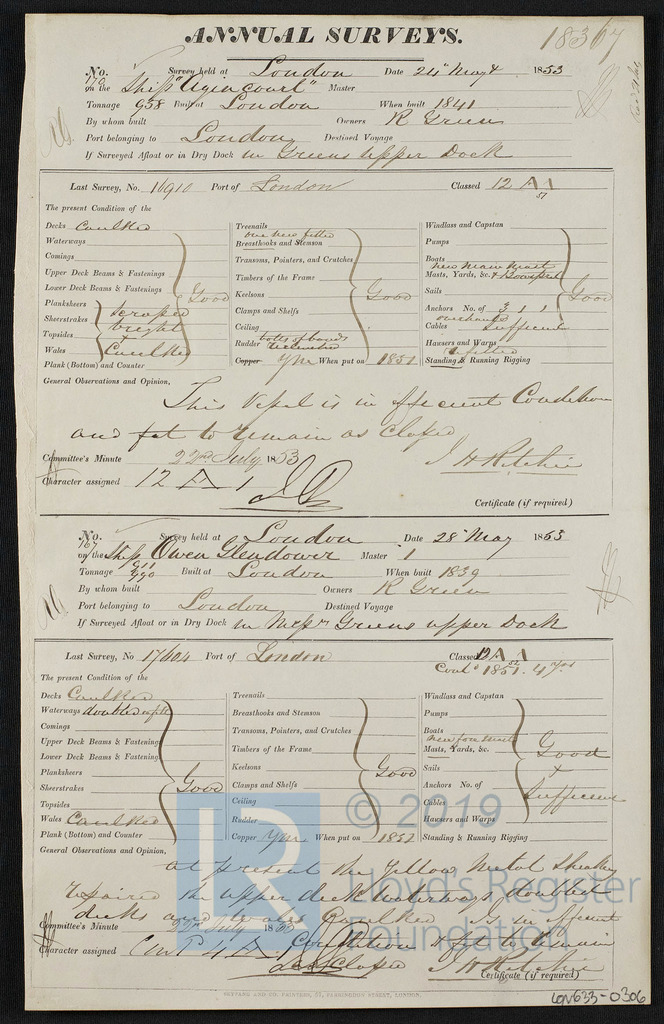 ANNUAL SURVEYS.
18367
No. 170 Survey held at London Date 24th May 1853
on the Ship "Agincourt" Master
Tonnage 958 Built at London When built 1841
By whom built Owners R Green
Port belonging to London Destined Voyage
If Surveyed Afloat or in Dry Dock in Greens upper Dock
Last Survey, No. 16910 Port of London Classed 12 A 1
51
The present Condition of the
Decks Caulked
Waterways
Comings
Upper Deck Beams & Fastenings
Lower Deck Beams & Fastenings
Good
Planksheers scraped
Sheerstrakes bright
Topsides &
Wales Caulked
Plank (Bottom) and Counter
Treenails
one new fitted
Breasthooks and Stemson
Transoms, Pointers, and Crutches
Timbers of the Frame
Keelsons
Good
Clamps and Shelfs
Ceiling
Rudder
Copper YM When put on 1851
Windlass and Capstan
Pumps
Boats
new Main Mast
Masts, Yards, &c. & Bowsprit
Sails
Good
Anchors No. of 3 1 1
overhauled
Cables Sufficient
Hawsers and Warps
refitted
Standing & Running Rigging
General Observations and Opinion,
This Vessel is in efficient Condition
and fit to remain as classed
Committee's Minute 22nd July 1853
J H Ritchie
Character assigned 12 A 1
Certificate (if required)
No. 167 Survey held at London Date 28th May 1853
on the Ship Owen Glendower Master
Tonnage 911 Built at London When built 1839
By whom built Owners R Green
Port belonging to London Destined Voyage
If Surveyed Afloat or in Dry Dock in Messrs Greens upper Dock
Last Survey, No 17404 Port of London Classed 12 A 1
Contd 1851. 4 yrs
The present Condition of the
Decks Caulked
Waterways doubled
Comings
Upper Deck Beams & Fastening
Lower Deck Beams & Fastening
Planksheers
Good
Sheerstrakes
Topsides
Wales Caulked
Plank (Bottom) and Counter
Treenails
Breasthooks and Stemson
Transoms, Pointers, and Crutches
Timbers of the Frame
Keelsons
Good
Clamps and Shelfs
Ceiling
Rudder
Copper YM When put on 1852
Windlass and Capstan
Pumps
Boats
new fore mast
Masts, Yards, &c.
Good
Sails
&
Anchors No. of
Sufficient
Cables
Hawsers and Warps
Standing & Running Rigging
General Observations and Opinion,
at present the Yellow Metal Sheathing
repaired the upper deck waterways doubled
decks and wales Caulked is in efficient
Committee's Minute 22nd July 1853
Condition & fit to remain
Character assigned Cont 4 A 1
as Classed J H Ritchie
Certificate (if required)
LR © 2019
Lloyd's Register
Foundation
LON633-0306